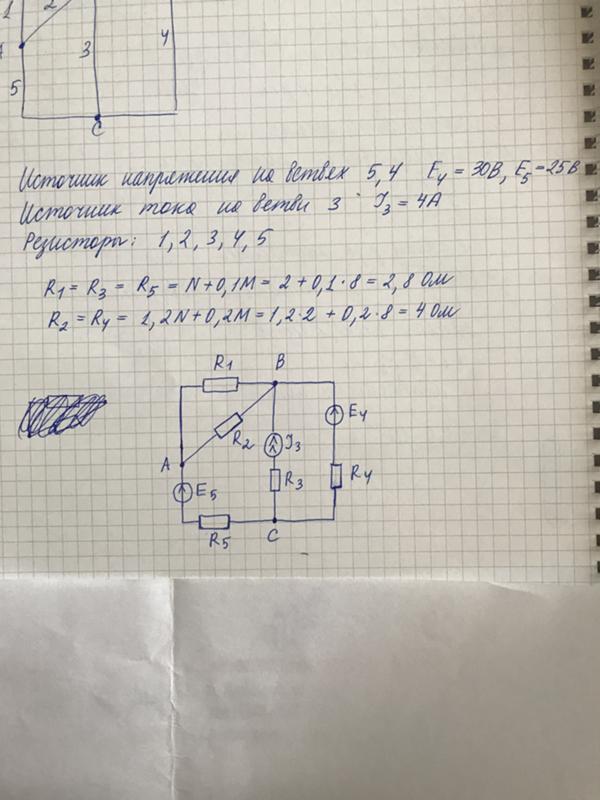 1 2
3
4
5
C
Источник напряжения на ветвях 5,4 E₄ = 30В, E₅=25В
Источник тока на ветви 3 J₃ = 4А
Резисторы: 1, 2, 3, 4, 5
R₁ = R₃ = R₅ = N+0,1M = 2+0,1·8 = 2,8 Ом
R₂ = R₄ = 1,2N+0,2M = 1,2·2 + 0,2·8 = 4 Ом
R₁ B
E₄
R₂ J₃
A
R₃ R₄
E₅
R₅ C